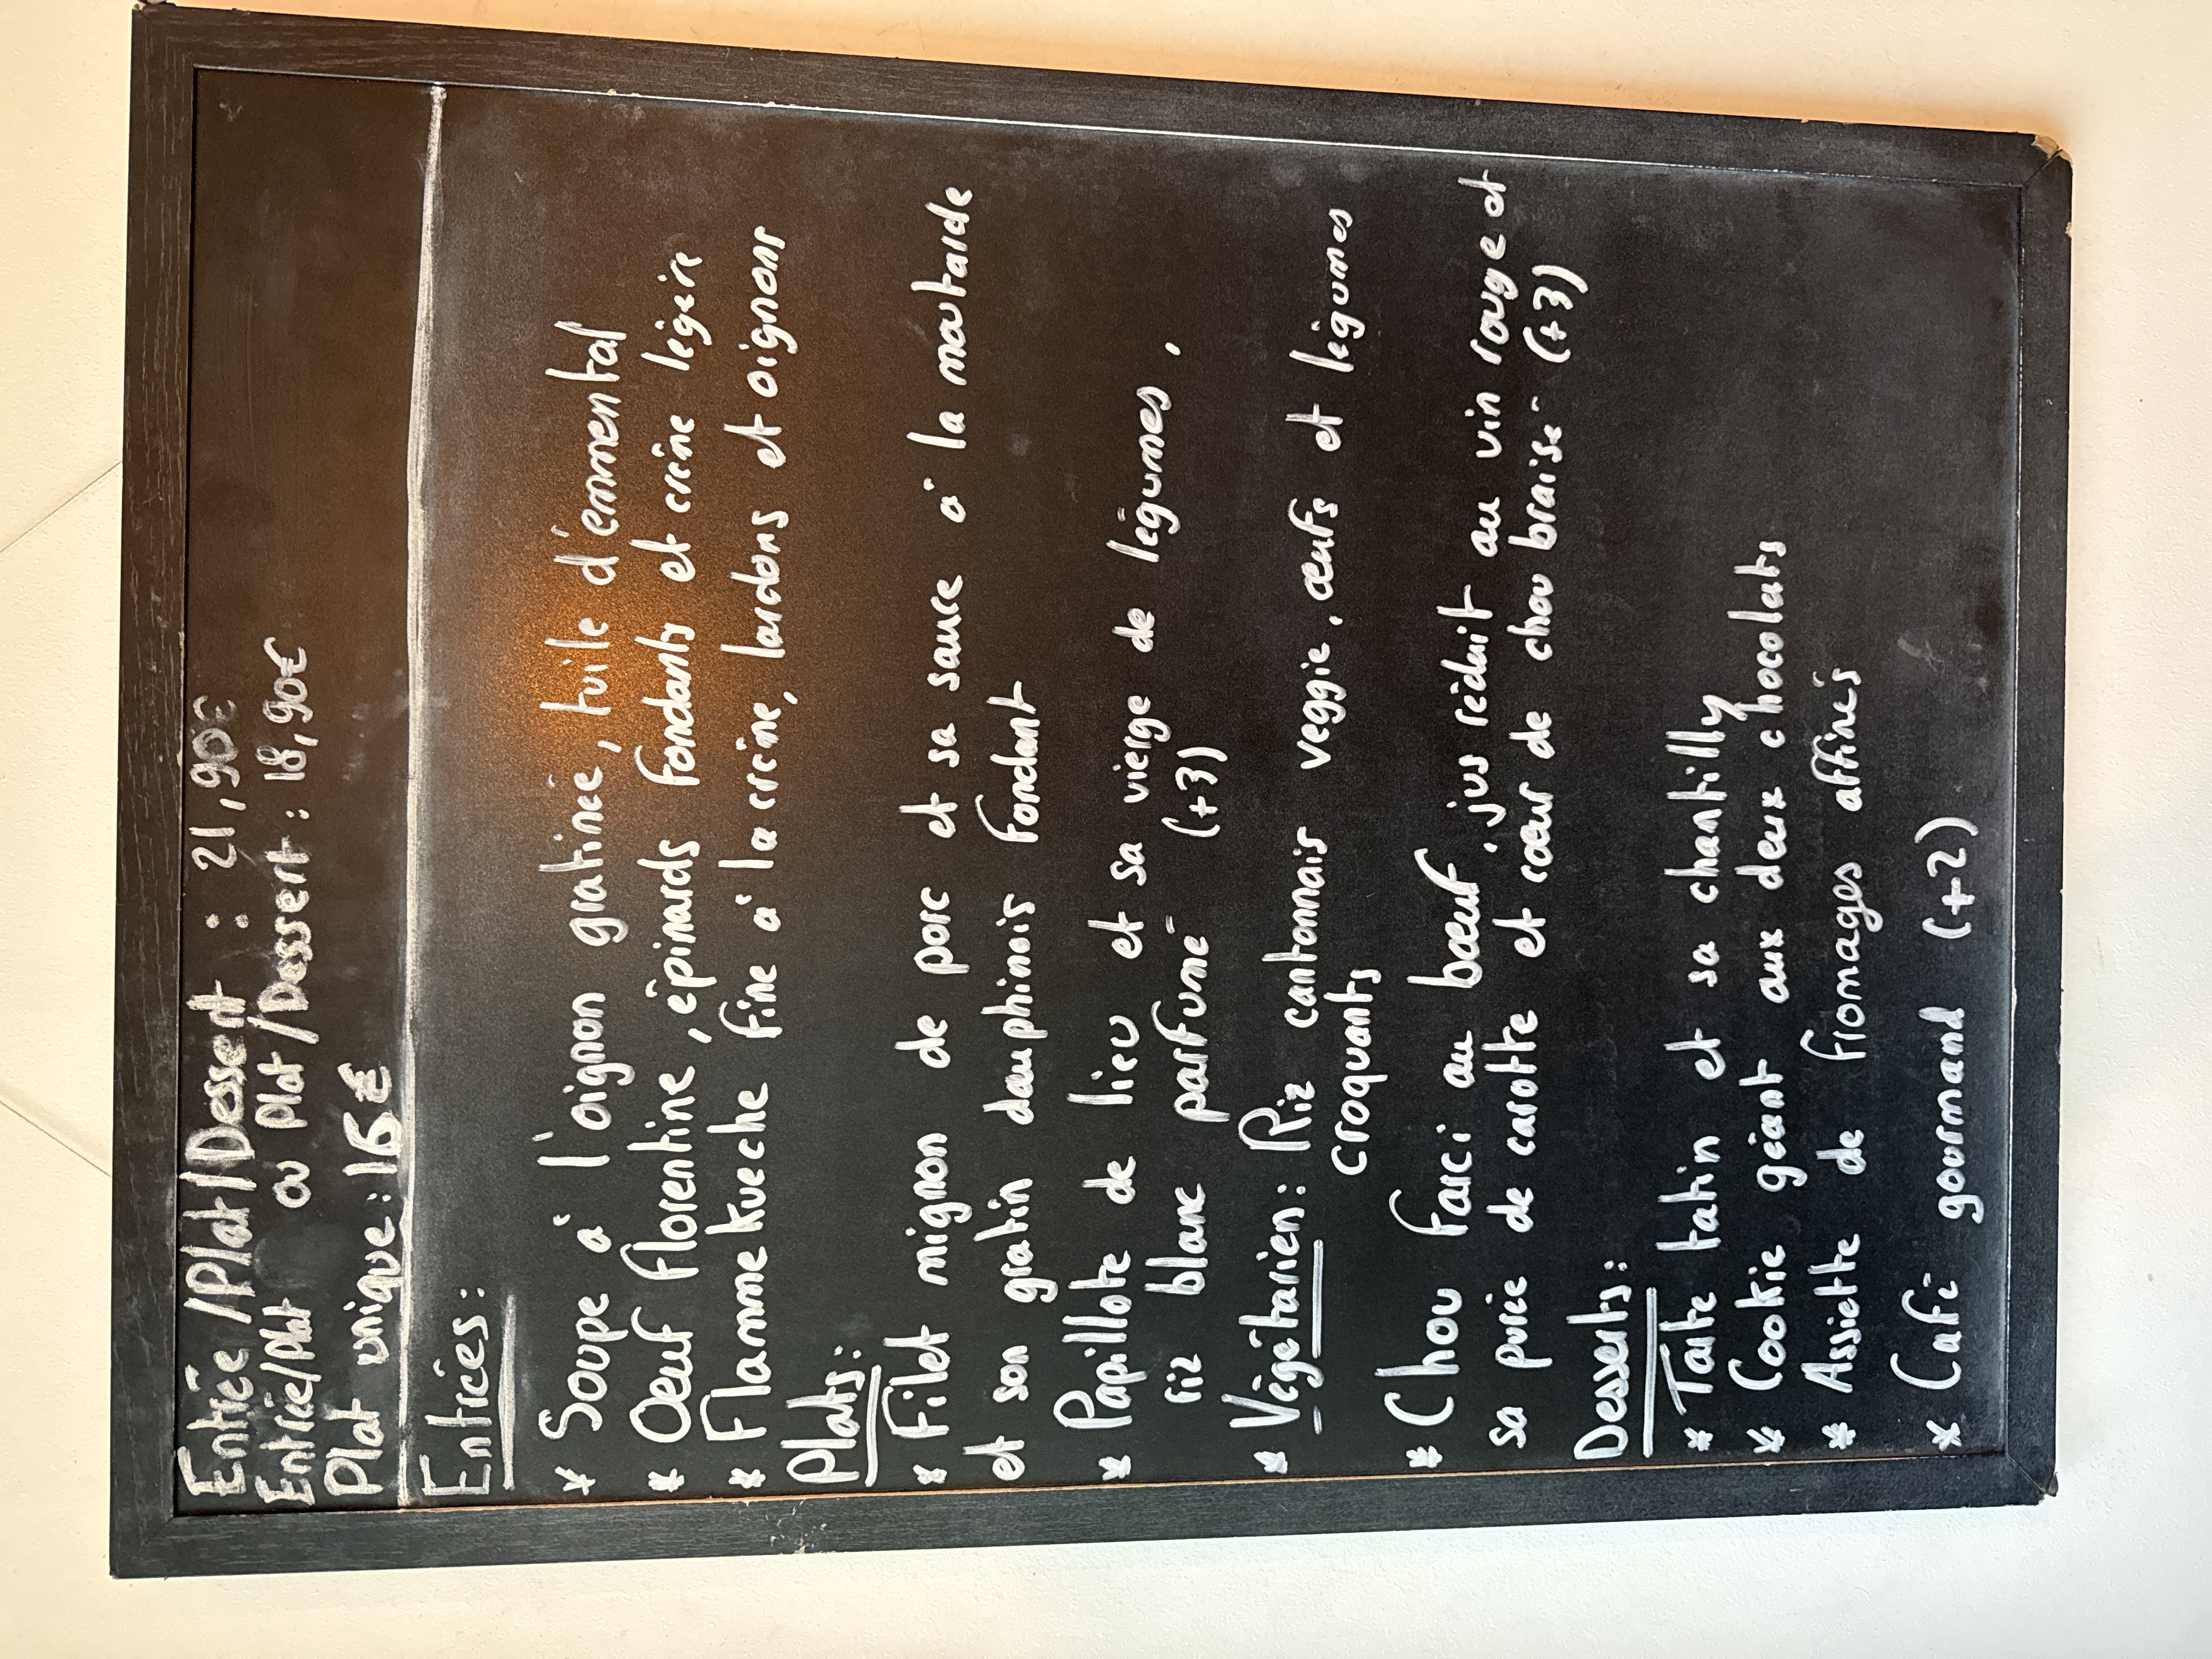 Entrée/Plat/Dessert : 21,90€
Entrée/Plat ou Plat/Dessert : 18,90€
Plat unique : 16€
Entrées :
* Soupe à l'oignon gratinée, tuile d'emmental
* Oeuf florentine, épinards fondants et crème légère
* Flammekueche fine à la crème, lardons et oignons
Plats :
* Filet mignon de porc et sa sauce à la moutarde
et son gratin dauphinois fondant
* Papillote de lieu et sa vierge de légumes,
riz blanc parfumé (+3)
* Végétarien : Riz cantonnais veggie, œufs et légumes
croquants
* Chou farci au bœuf, jus réduit au vin rouge et
sa purée de carotte et cœur de chou braisé (+3)
Desserts :
* Tarte tatin et sa chantilly
* Cookie géant aux deux chocolats
* Assiette de fromages affinés
* Café gourmand (+2)